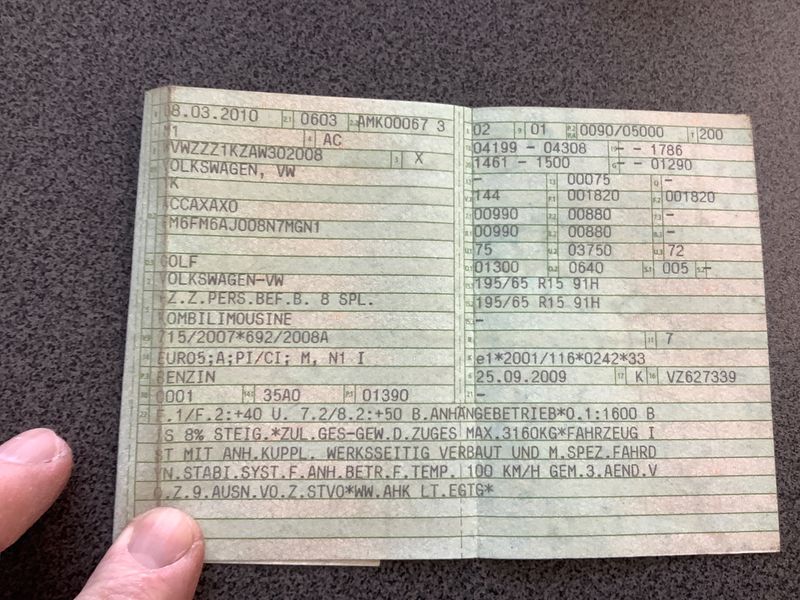 08.03.2010 2.1 0603 2.2 AMK00067 3
M1 4 AC
WVWZZZ1KZAW302008 3 X
VOLKSWAGEN, VW
1K
ACCAXAX0
FM6FM6AJ008N7MGN1
GOLF
VOLKSWAGEN-VW
FZ.Z.PERS.BEF.B. 8 SPL.
KOMBILIMOUSINE
715/2007*692/2008A
EURO5;A;PI/CI; M, N1 I
BENZIN
0001 35A0 01390
02 9 01 0090/05000 T 200
04199 - 04308 - - 1786
1461 - 1500 - - 01290
- 00075 -
144 001820 001820
00990 00880 -
00990 00880 -
75 03750 72
01300 0640 005 -
195/65 R15 91H
195/65 R15 91H
-
- 7
e1*2001/116*0242*33
25.09.2009 17 K 16 VZ627339
-
F.1/F.2:+40 U. 7.2/8.2:+50 B.ANHÄNGEBETRIEB*0.1:1600 B
IS 8% STEIG.*ZUL.GES-GEW.D.ZUGES MAX.3160KG*FAHRZEUG I
ST MIT ANH.KUPPL. WERKSSEITIG VERBAUT UND M.SPEZ.FAHRD
YN.STABI.SYST.F.ANH.BETR.F.TEMP. 100 KM/H GEM.3.AEND.V
O.Z.9.AUSN.VO.Z.STVO*WW.AHK LT.EGTG*